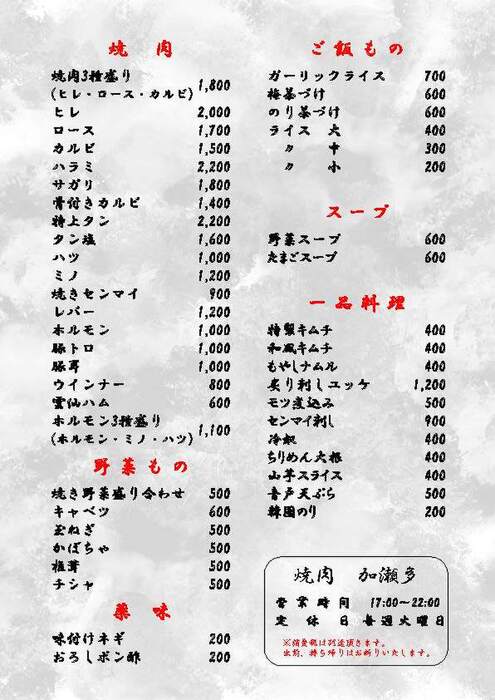 焼肉
焼肉3種盛り
(ヒレ・ロース・カルビ) 1,800
ヒレ 2,000
ロース 1,700
カルビ 1,500
ハラミ 2,200
サガリ 1,800
骨付きカルビ 1,400
特上タン 2,200
タン塩 1,600
ハツ 1,000
ミノ 1,200
焼きセンマイ 900
レバー 1,200
ホルモン 1,000
豚トロ 1,000
豚耳 1,000
ウインナー 800
雲仙ハム 600
ホルモン3種盛り
(ホルモン・ミノ・ハツ) 1,100
野菜もの
焼き野菜盛り合わせ 500
キャベツ 600
玉ねぎ 500
かぼちゃ 500
椎茸 500
チシャ 500
薬味
味付けネギ 200
おろしポン酢 200
ご飯もの
ガーリックライス 700
梅茶づけ 600
のり茶づけ 600
ライス 大 400
〃 中 300
〃 小 200
スープ
野菜スープ 600
たまごスープ 600
一品料理
特製キムチ 400
和風キムチ 400
もやしナムル 400
炙り刺しユッケ 1,200
モツ煮込み 500
センマイ刺し 900
冷奴 400
ちりめん大根 400
山芋スライス 400
音戸天ぷら 500
韓国のり 200
焼肉 加瀬多
営業時間 17:00～22:00
定休日 毎週火曜日
※消費税は別途頂きます。
出前、持ち帰りはお断りいたします。